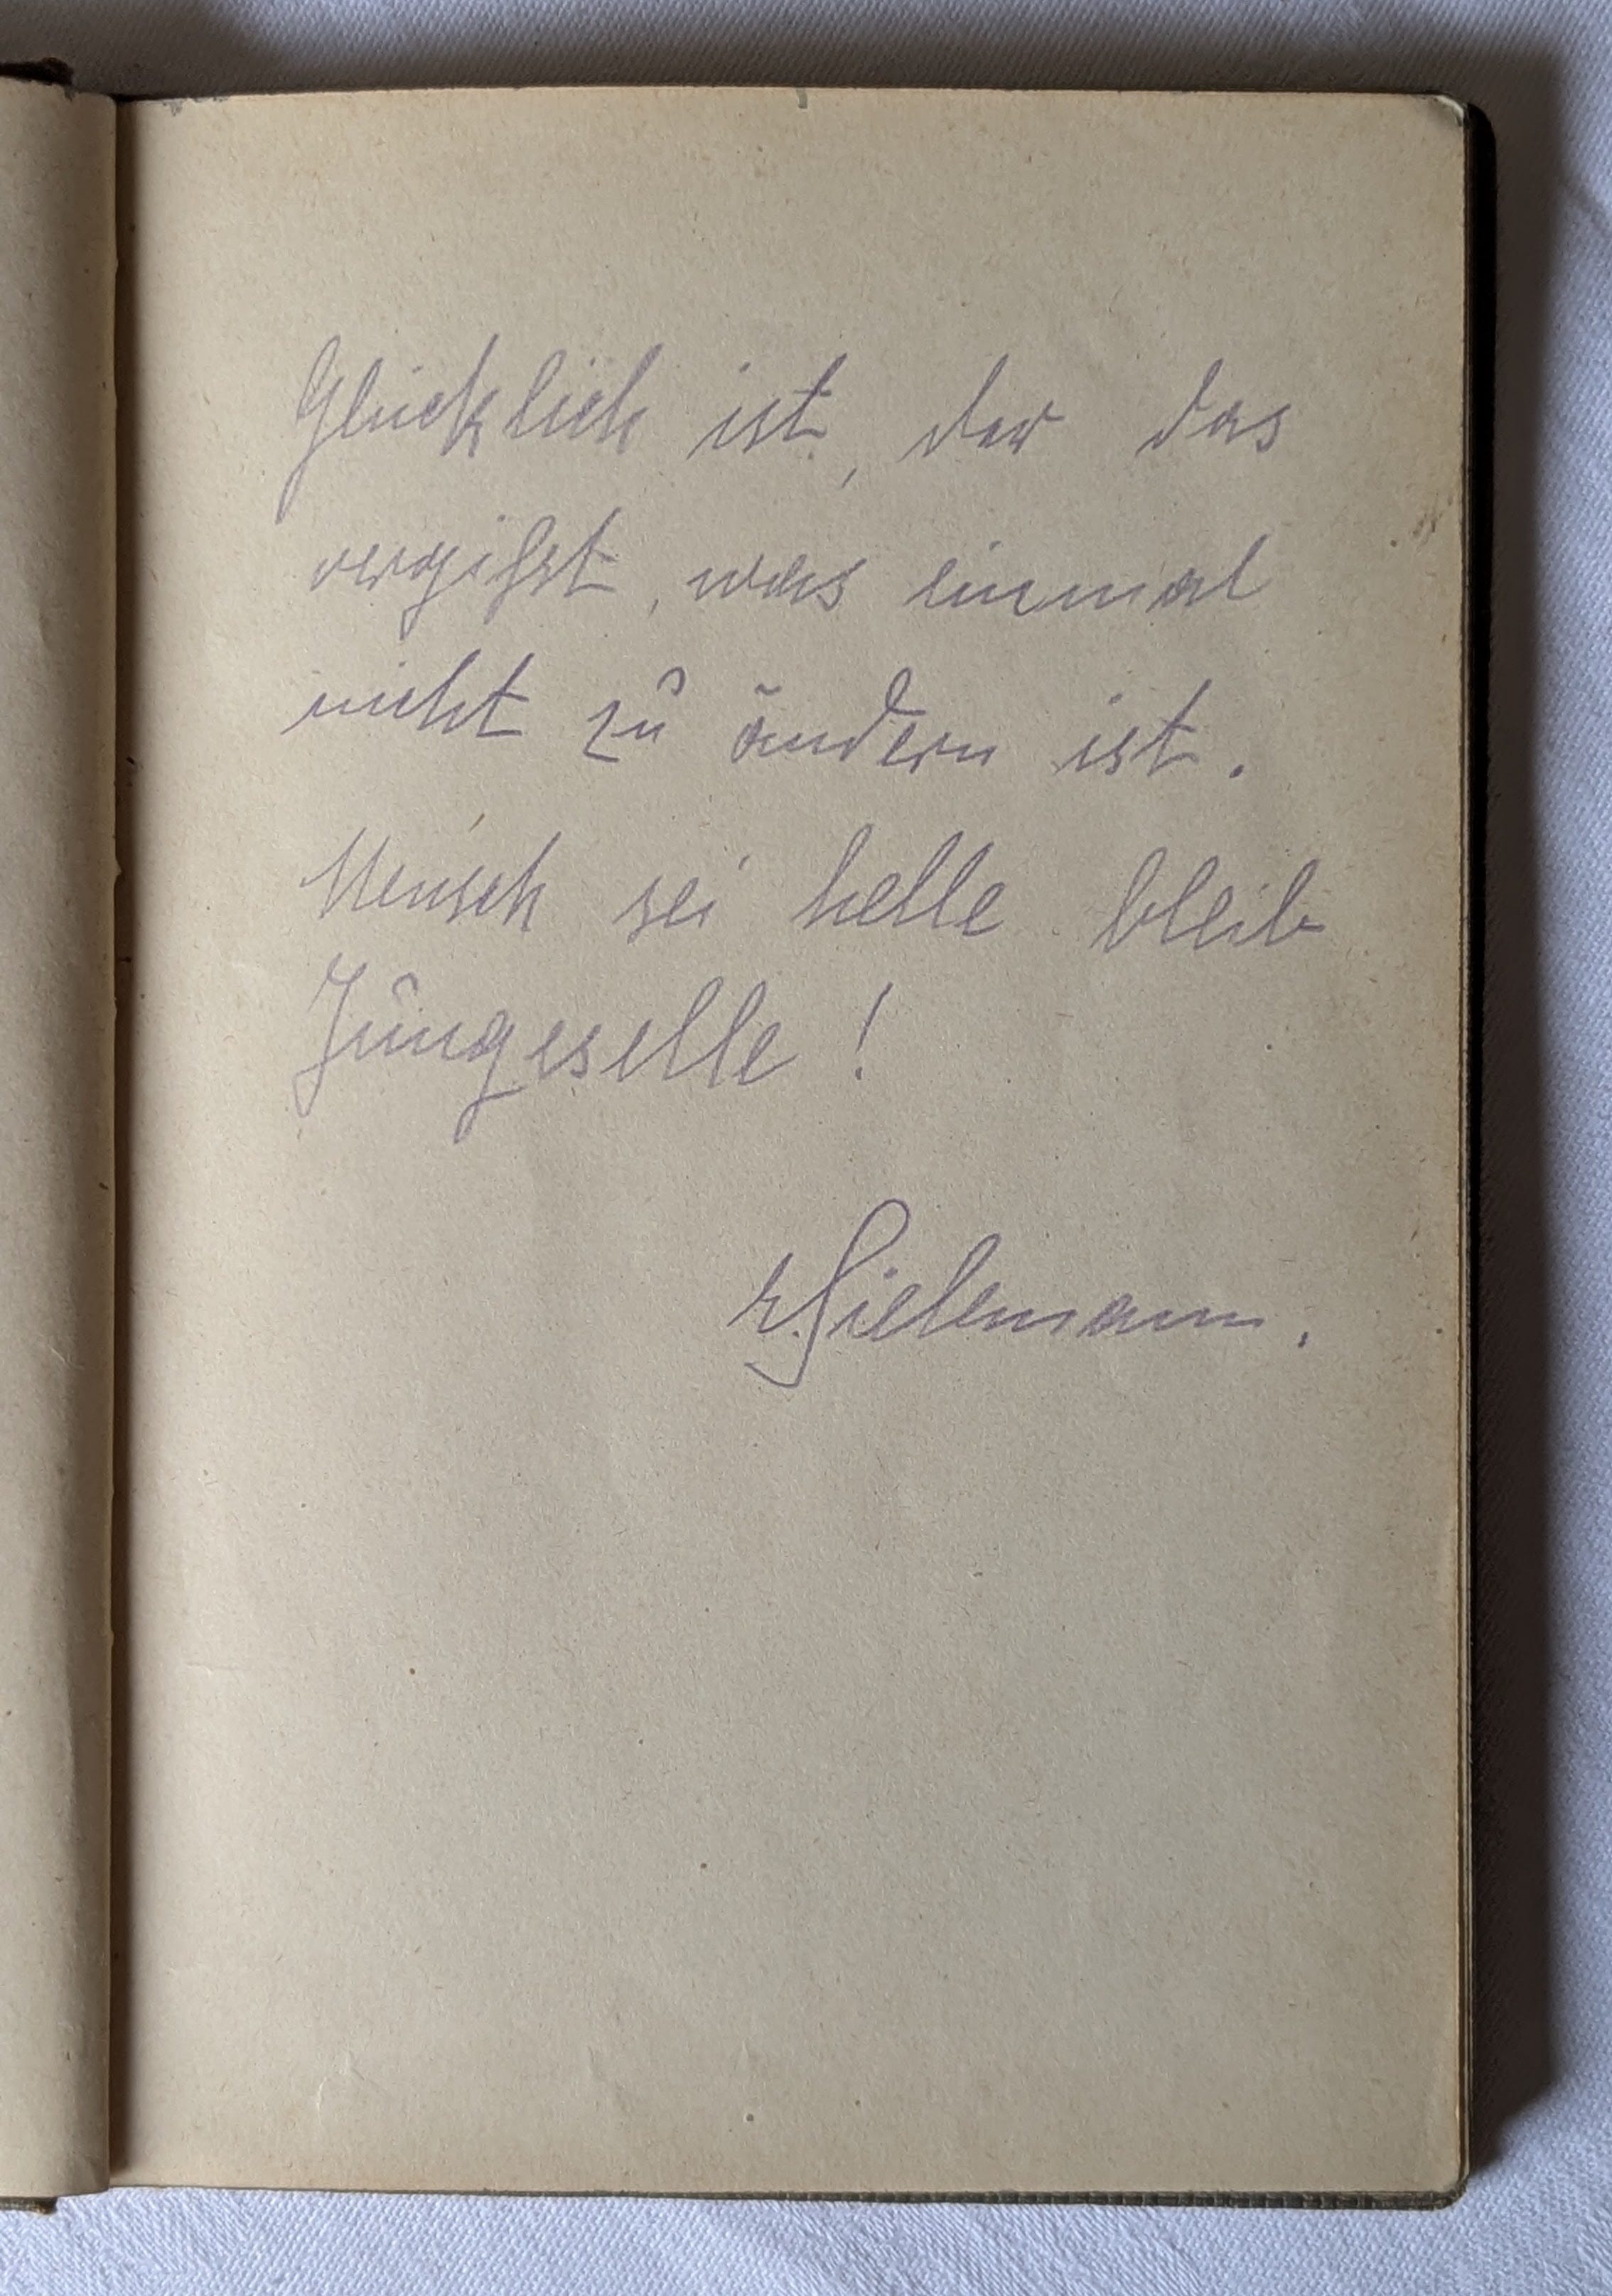 Glücklich ist, der das
vergißt, was einmal
nicht zu ändern ist.
Mensch sei helle bleib
Jungeselle!